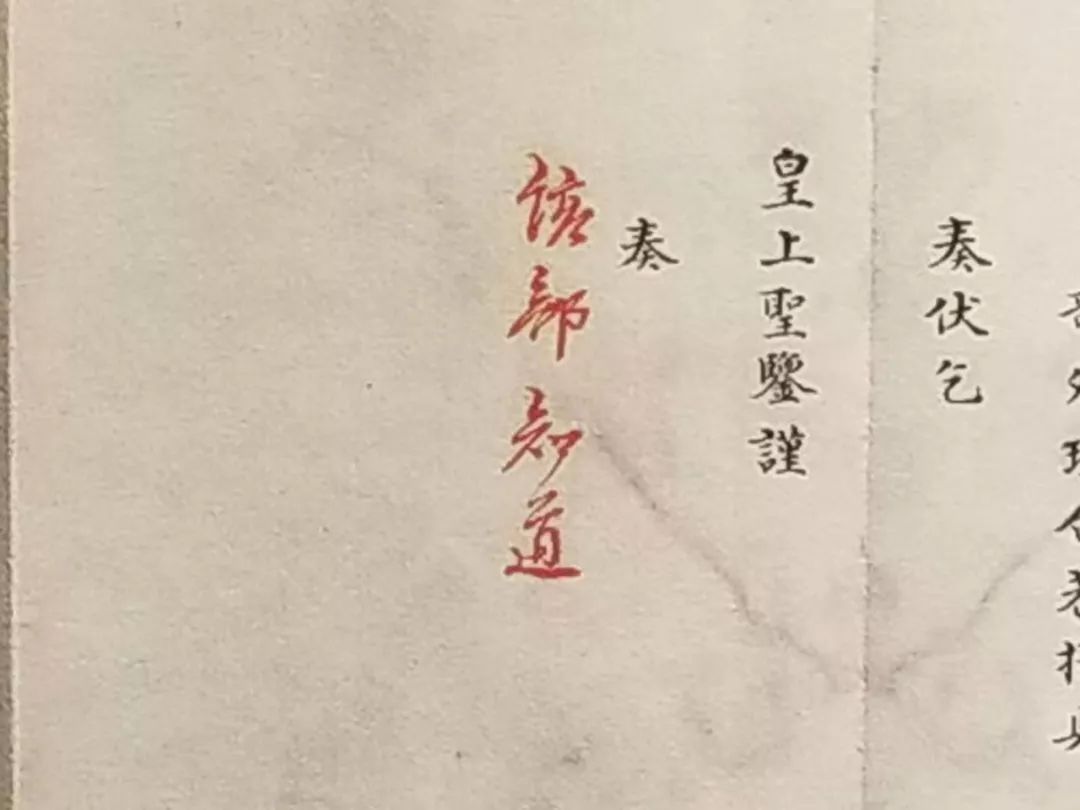 奏伏乞
皇上聖鑒謹
奏
該部知道